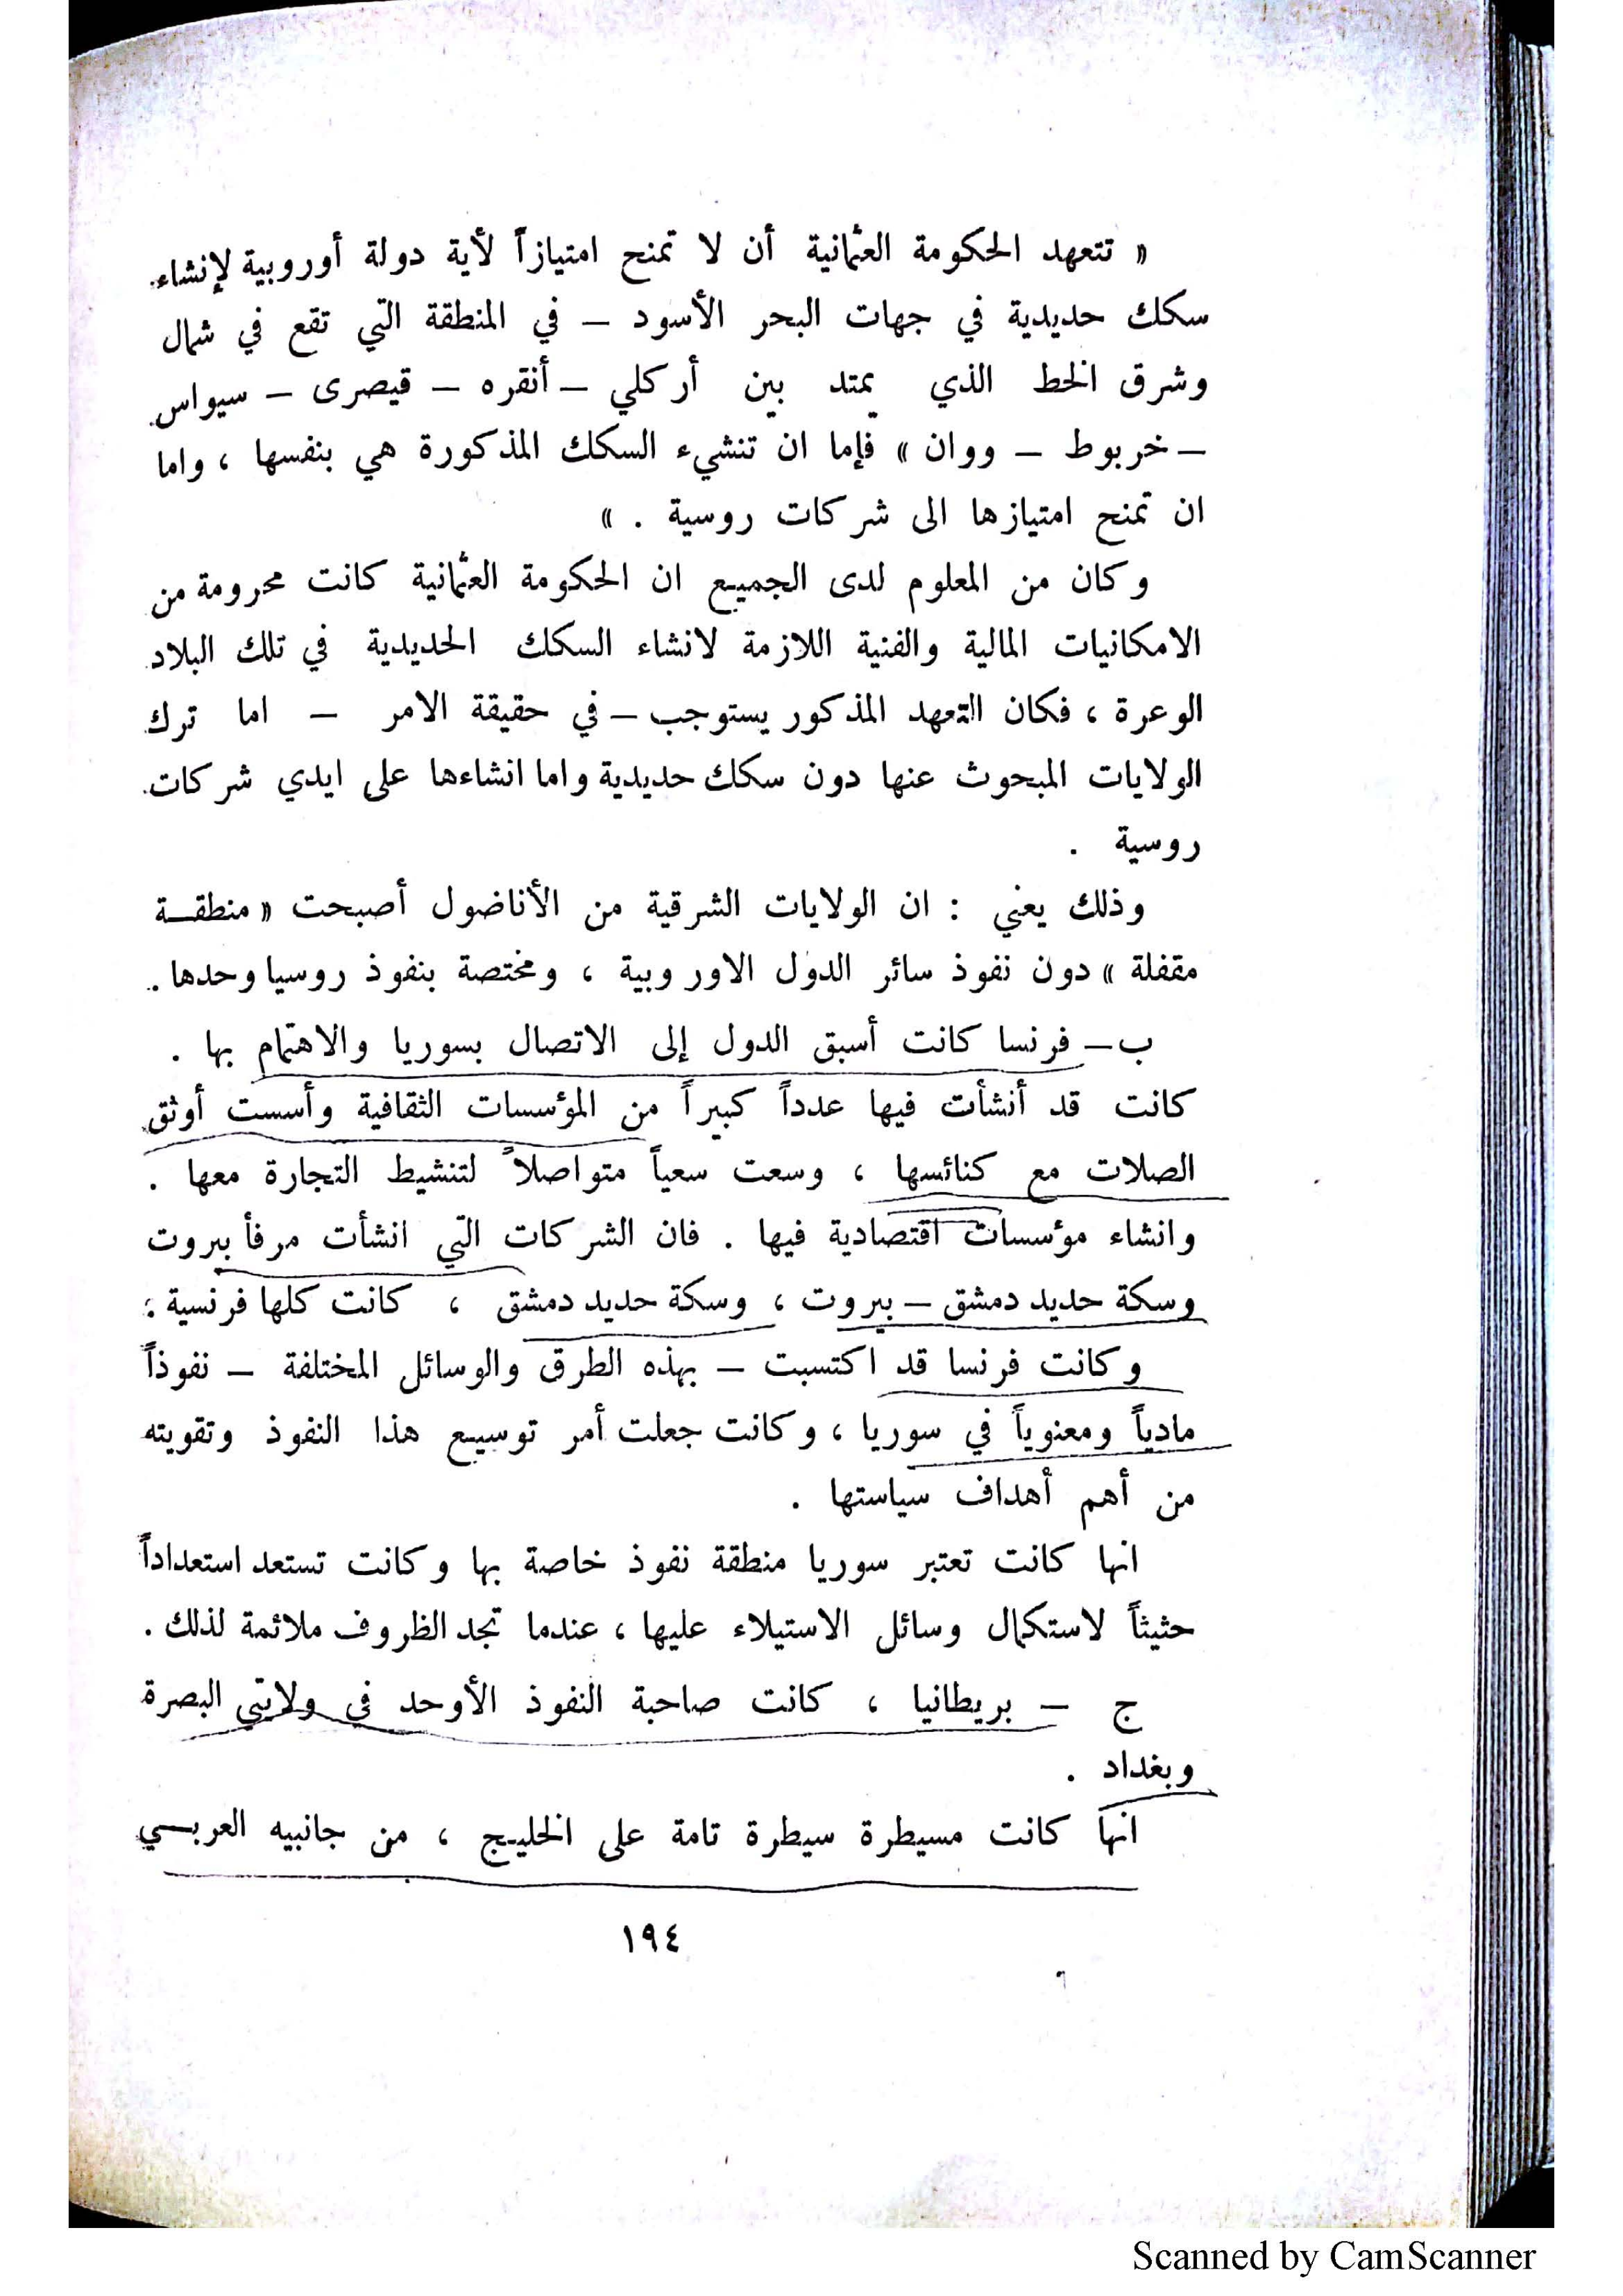 « تتعهد الحكومة العثمانية أن لا تمنح امتيازاً لأية دولة أوروبية لإنشاء
سكك حديدية في جهات البحر الأسود – في المنطقة التي تقع في شمال
وشرق الخط الذي يمتد بين أركلي – أنقره – قيصرى – سيواس
– خربوط – ووان » فإما ان تنشيء السكك المذكورة هي بنفسها ، واما
ان تمنح امتيازها الى شركات روسية . »
وكان من المعلوم لدى الجميع ان الحكومة العثمانية كانت محرومة من
الامكانيات المالية والفنية اللازمة لانشاء السكك الحديدية في تلك البلاد
الوعرة ، فكان التعهد المذكور يستوجب – في حقيقة الامر – اما ترك
الولايات المبحوث عنها دون سكك حديدية واما انشاءها على ايدي شركات
روسية .
وذلك يعني : ان الولايات الشرقية من الأناضول أصبحت « منطقـة
مقفلة » دون نفوذ سائر الدول الاوروبية ، ومختصة بنفوذ روسيا وحدها .
ب – فرنسا كانت أسبق الدول إلى الاتصال بسوريا والاهتمام بها .
كانت قد أنشأت فيها عدداً كبيراً من المؤسسات الثقافية وأسست أوثق
الصلات مع كنائسها ، وسعت سعياً متواصلاً لتنشيط التجارة معها .
وانشاء مؤسسات اقتصادية فيها . فان الشركات التي انشأت مرفأ بيروت
وسكة حديد دمشق – بيروت ، وسكة حديد دمشق ، كانت كلها فرنسية :
وكانت فرنسا قد اكتسبت – بهذه الطرق والوسائل المختلفة – نفوذاً
مادياً ومعنوياً في سوريا ، وكانت جعلت أمر توسيع هذا النفوذ وتقويته
من أهم أهداف سياستها .
انها كانت تعتبر سوريا منطقة نفوذ خاصة بها وكانت تستعد استعداداً
حثيثاً لاستكمال وسائل الاستيلاء عليها ، عندما تجد الظروف ملائمة لذلك .
ج – بريطانيا ، كانت صاحبة النفوذ الأوحد في ولايتي البصرة
وبغداد .
انها كانت مسيطرة سيطرة تامة على الخليج ، من جانبيه العربـي
١٩٤
Scanned by CamScanner